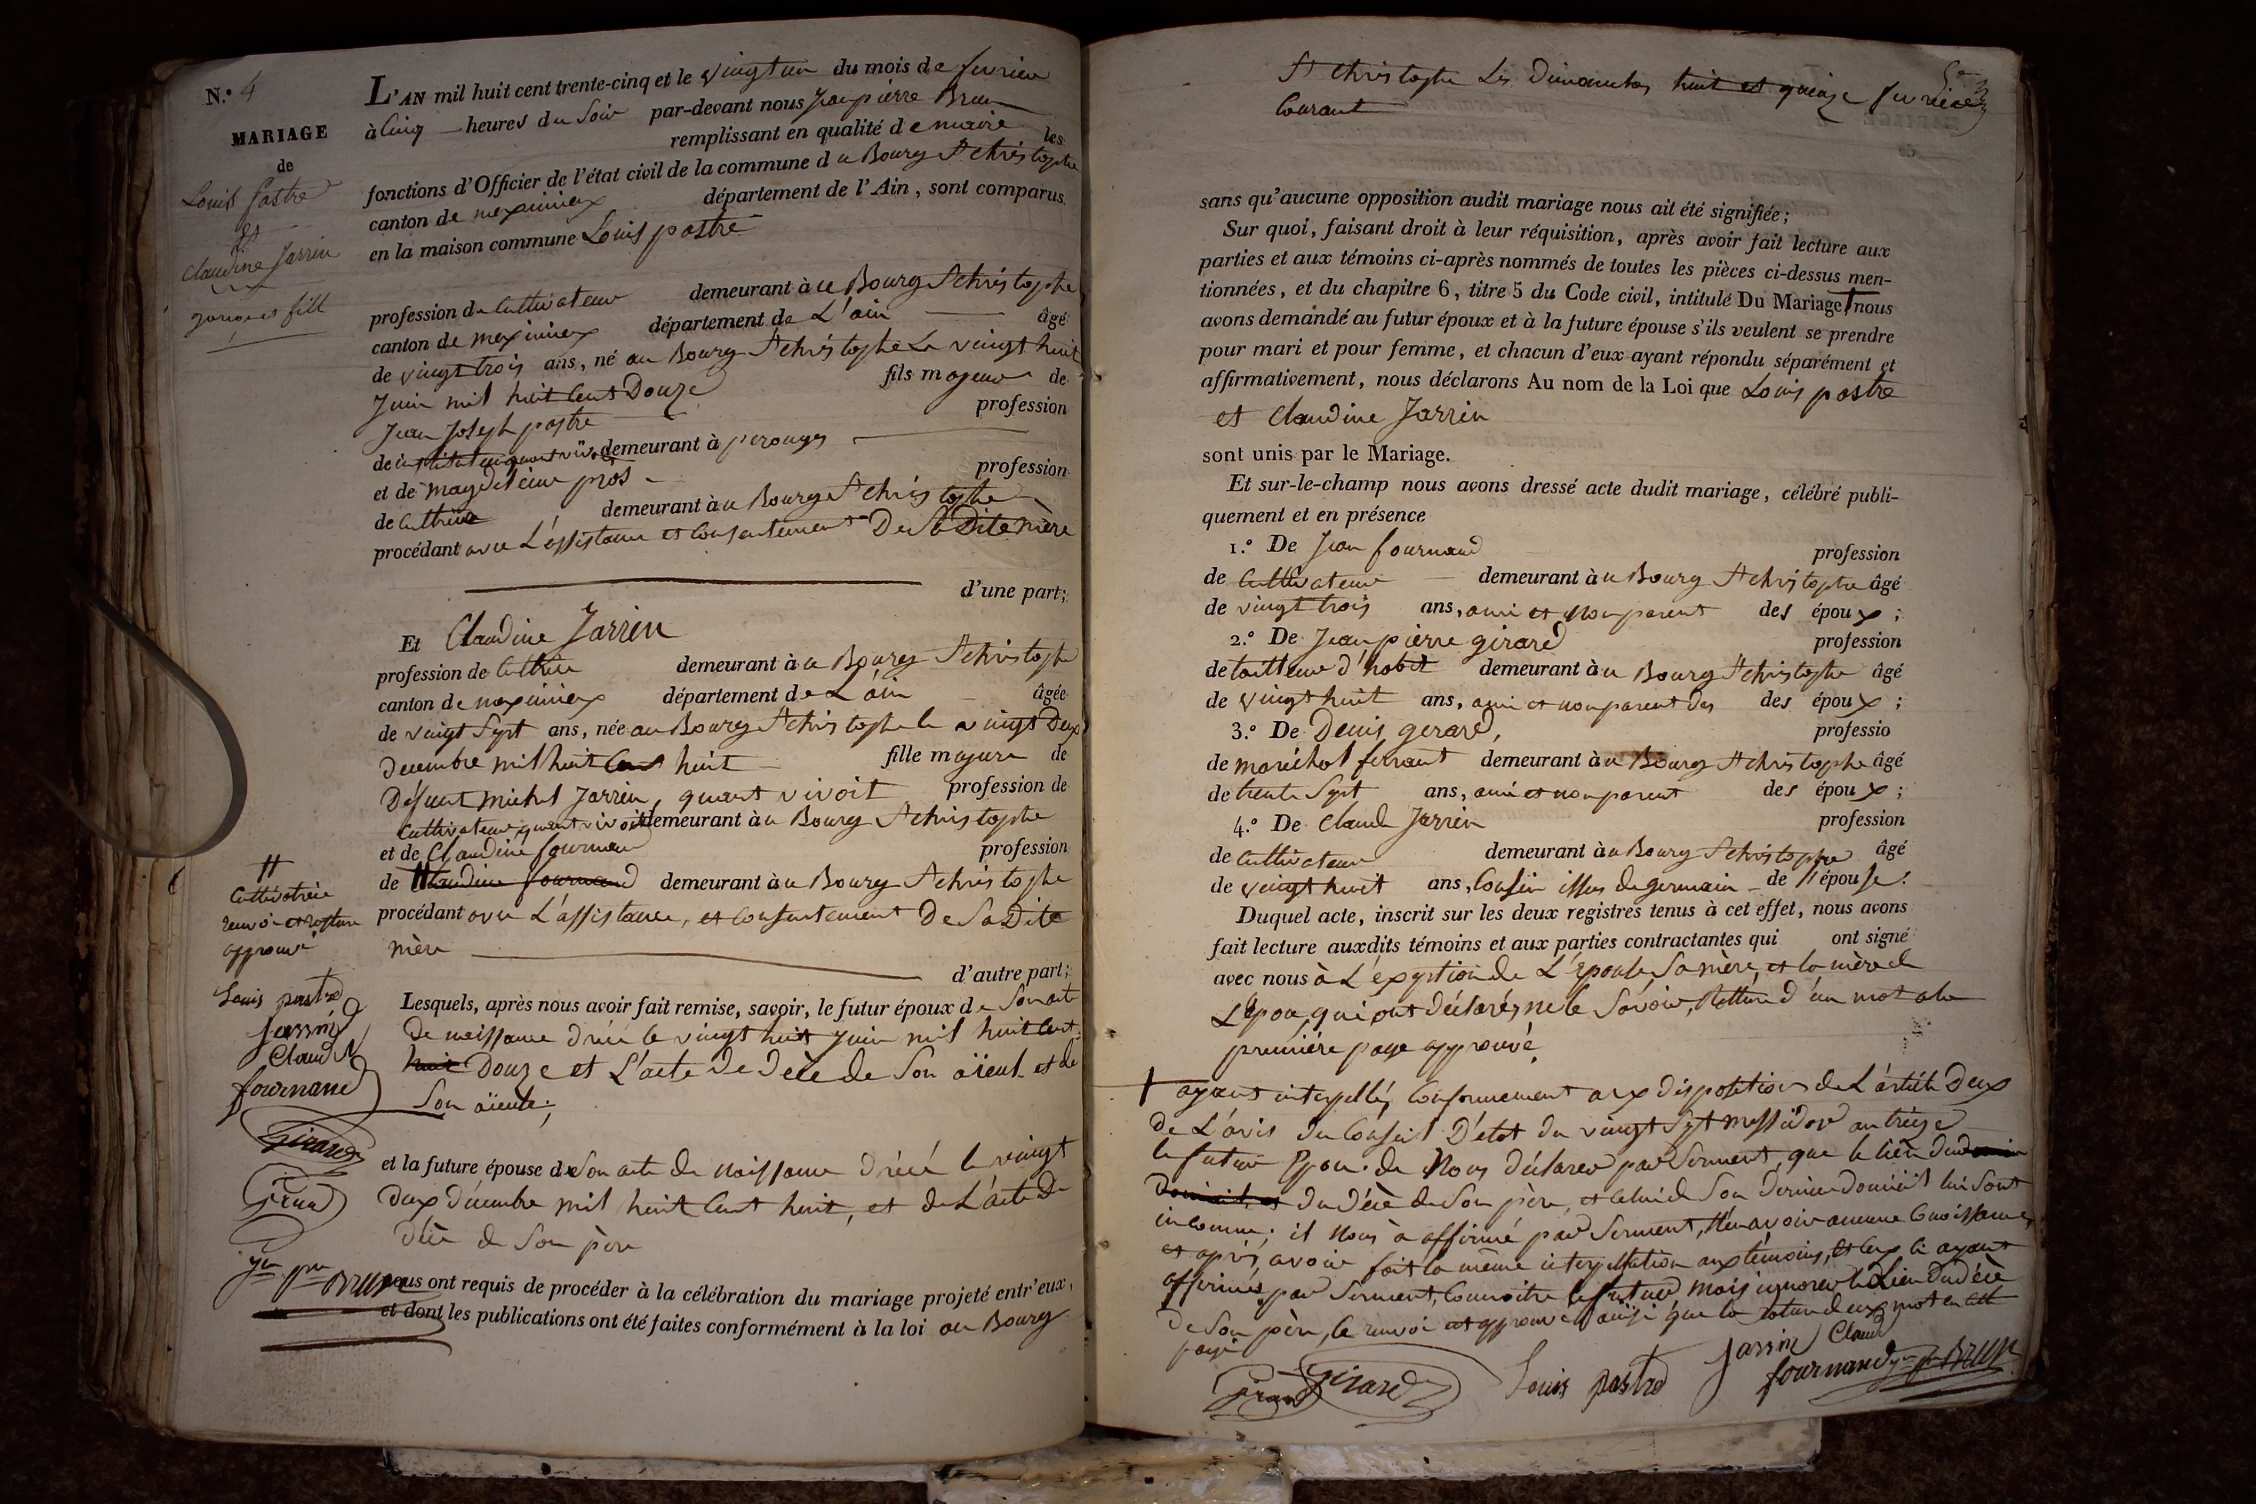 N.° 4
MARIAGE
de
Louis pastre
et
Claudine Jarrin
garçon et fille
L'AN mil huit cent trente-cinq et le vingt un du mois de fevrier
à Cinq heures du Soir par-devant nous Jean pierre Brun
remplissant en qualité de maire les
fonctions d'Officier de l'état civil de la commune du Bourg St christophe
canton de meximieux département de l'Ain, sont comparus
en la maison commune Louis pastre
profession de Cultivateur demeurant à u Bourg St christophe
canton de meximieux département de L'ain âgé
de vingt trois ans, né au Bourg St christophe Le vingt huit
Juin mil huit Cent Douze fils majeur de
Jean Joseph pastre profession
de institut quant vivoit demeurant à perouges
et de magdeleine pros profession
de Cultrice demeurant à u Bourg St christophe
procédant avec L'assistance et Consentement De Sa Dite mère
d'une part;
Et Claudine Jarrin
profession de Cultrice demeurant à u Bourg St christophe
canton de meximieux département de L'ain âgée
de vingt Sept ans, née au Bourg St christophe le vingt Deux
Decembre mil huit Cent huit fille majeure de
Défunt michel Jarrin, quant vivoit profession de
Cultivateur quant vivoit demeurant à u Bourg St christophe
et de Claudine fournand profession
de Claudine fournand demeurant à u Bourg St christophe
procédant avec L'assistance, et Consentement De Sa Dite
mère
d'autre part;
Lesquels, après nous avoir fait remise, savoir, le futur époux de Son acte
De naissance Dréé le vingt huit Juin mil huit Cent
huit Douze et L'acte De Décè de Son aïeul et de
Son aïeule;
et la future épouse de Son acte De naissance Dréé le vingt
Deux Décembre mil huit Cent huit, et de L'acte De
Décè de Son père
nous ont requis de procéder à la célébration du mariage projeté entr'eux,
et dont les publications ont été faites conformément à la loi au Bourg
Cultivatrice
renvoi et rature
approuvé
Louis pastre
Jarrin
Claude
fournand
Girard
Girard
Jn Pre BRUN
St christophe Les Dimanches huit et quinze fevrier
Courant
sans qu'aucune opposition audit mariage nous ait été signifiée;
Sur quoi, faisant droit à leur réquisition, après avoir fait lecture aux
parties et aux témoins ci-après nommés de toutes les pièces ci-dessus men-
tionnées, et du chapitre 6, titre 5 du Code civil, intitulé Du Mariage † nous
avons demandé au futur époux et à la future épouse s'ils veulent se prendre
pour mari et pour femme, et chacun d'eux ayant répondu séparément et
affirmativement, nous déclarons Au nom de la Loi que Louis pastre
et Claudine Jarrin
sont unis par le Mariage.
Et sur-le-champ nous avons dressé acte dudit mariage, célébré publi-
quement et en présence
1.° De Jean fournand profession
de Cultivateur demeurant à u Bourg St christophe âgé
de vingt trois ans, ami et non parent des époux;
2.° De Jean pierre girard profession
de tailleur d'habit demeurant à u Bourg St christophe âgé
de vingt huit ans, ami et non parent des des époux;
3.° De Denis gerard, professio
de maréchal ferrant demeurant à u Bourg St christophe âgé
de trente Sept ans, ami et non parent des époux;
4.° De Claude Jarrin profession
de Cultivateur demeurant à u Bourg St christophe âgé
de vingt huit ans, Cousin issus de germain de l'épouse.
Duquel acte, inscrit sur les deux registres tenus à cet effet, nous avons
fait lecture auxdits témoins et aux parties contractantes qui ont signé
avec nous à L'éxeption de L'Epouse Sa mère, et la mère de
L'époux, qui ont Déclarés ne le Savoir, Rature d'un mot a la
première page approuvé
† ayant interpellé, Conformement aux dispositions de L'article Deux
de L'avis du Conseil D'état du vingt Sept messidor an treize
le futur Epoux de Nous Déclarer par Serment, que le lieu du
Domicile et du Décè de Son père, et celui de Son Dernier Domicile lui Sont
inconnu; il Nous à affirmé par Serment, N'en avoir aucune Conoissance,
et après avoir fait la même interpellation aux témoins, et Ceux ci ayant
affirmés par Serment, Connoitre le futur mais ignorer le Lieu du Décè
De Son père, le renvoi est approuvé ainsi que la rature deux mot en cette
page
Girard Girard Louis pastre Jarrin Claude
fournand Jn Pre BRUN